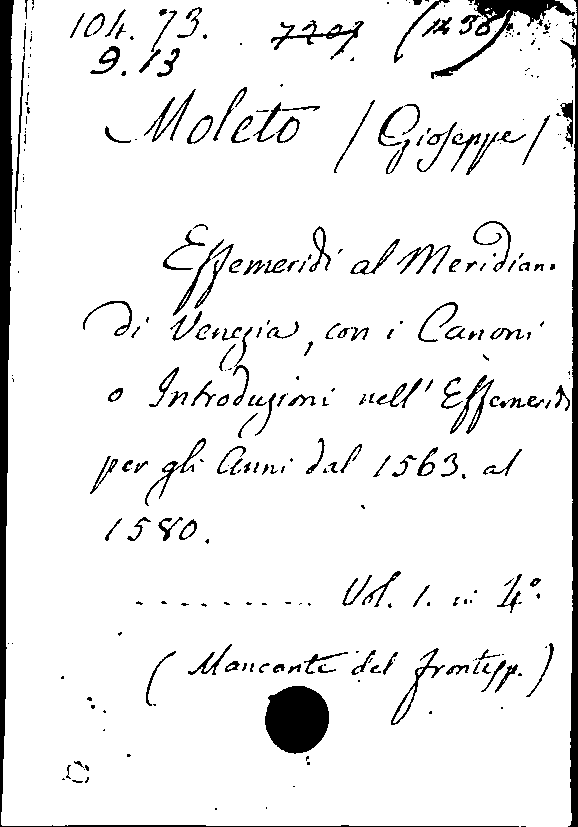 104. 73. 7207 (1436)
9. 13
Moleto / Gioseppe /
Effemeridi al Meridian.
di Venezia, con i Canoni
o Introduzioni nell' Effemeridi
per gli Anni dal 1563. al
1580.
............ Vol. 1. in 4°.
( Mancante del frontesp. )